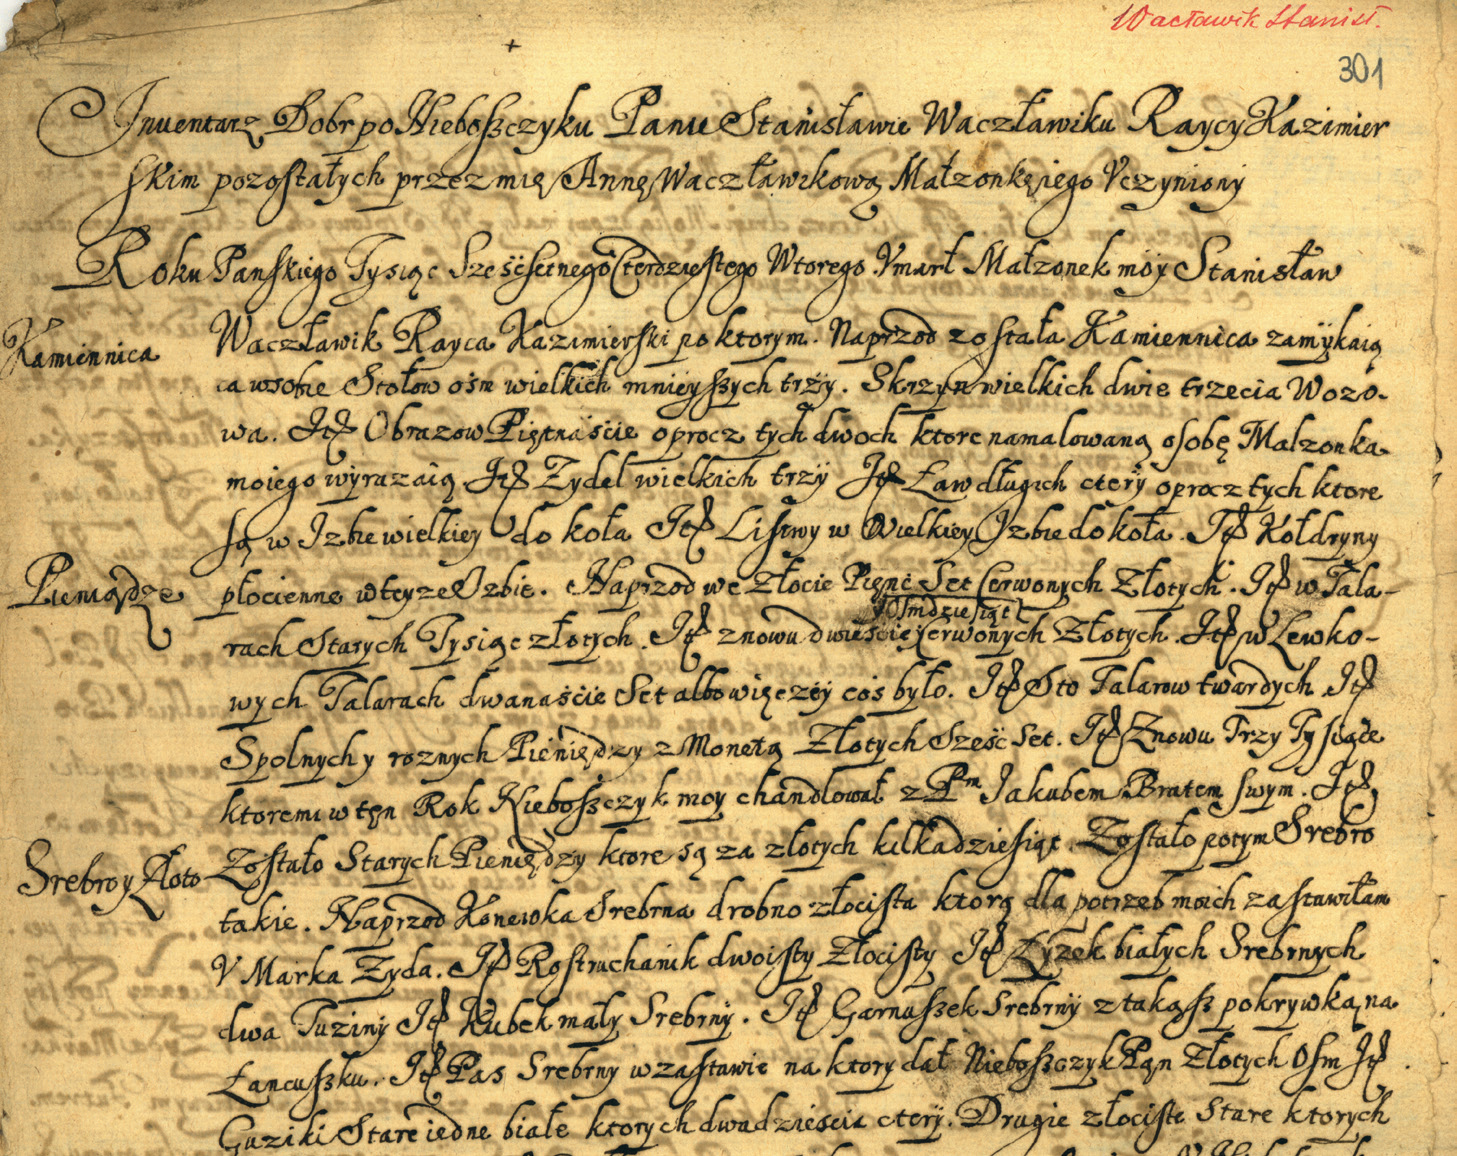 Wacławik Stanisł.
301
Inuentarz Dobr po Nieboszczyku Panu Stanisławie Waczławiku Raycy Kazimier
skim pozostałych przez mię Annę Waczławikową Małzonkę iego Vczyniony
Roku Panskiego Tysiąc Sześćsetnego Czterdziestego Wtorego Vmarł Małzonek moy Stanisław
Kamiennica
Waczławik Rayca Kazimierski po ktorym. Naprzod została Kamiennica zamykaią
ca w sobie Stołow ośm wielkich mnieyszych trzy. Skrzyn wielkich dwie trzecia Wozo-
wa. Itē Obrazow Piętnaście oprocz tych dwoch ktore namalowaną osobę Małzonka
moiego wyrazaią. Itē Zydel wielkich trzy Itē Ław długich ctery oprocz tych ktore
są w Izbie wielkiey do koła Itē Listwy w Wielkiey Izbie do koła. Itē Kołdryny
Pieniądze
płocienne w teyze Izbie. Naprzod we złocie Pięnć Set Cerwonych Złotych. Itē w Tala-
Osmdziesiąt
rach Starych Tysiąc złotych. Itē znowu dwieście Cerwonych Złotych. Itē w Lewko-
wych Talarach dwanaście Set albo więczey coś było. Itē Sto Talarow twardych Itē
Spolnych y roznych Pieniędzy z Monetą Złotych Sześć Set. Itē Znowu Trzy Tysiące
ktoremi w ten Rok Nieboszczyk moy chandlował z Pm Jakubem Bratem swym. Itē
Srebro y Złoto
Zostało Starych Pieniędzy ktore są za złotych kilkadziesiąt. Zostało potym Srebro
takie. Naprzod Konewka Srebrna drobno złocista ktorą dla potrzeb moich zastawiłam
V Marka Zyda. Itē Rostruchanik dwoisty Złocisty Itē Łyzek białych Srebrnych
dwa Tuziny Itē Kubek mały Srebrny. Itē Garnuszek Srebrny z takąsz pokrywką na
Łancuszku. Itē Pas Srebrny w zastawie na ktory dał Nieboszczyk Pan Złotych Osm Itē
Guziki Stare iedne białe ktorych dwadzieścia ctery. Drugie złociste Stare ktorych